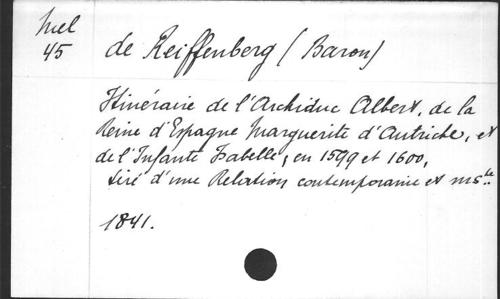 Mel
45
de Reiffenberg (Baron)
Itinéraire de l'Archiduc Albert, de la
Reine d'Espagne Marguerite d'Autriche, et
de l'Infante Isabelle, en 1599 et 1600,
tiré d'une Relation contemporaine et ms.te
1841.